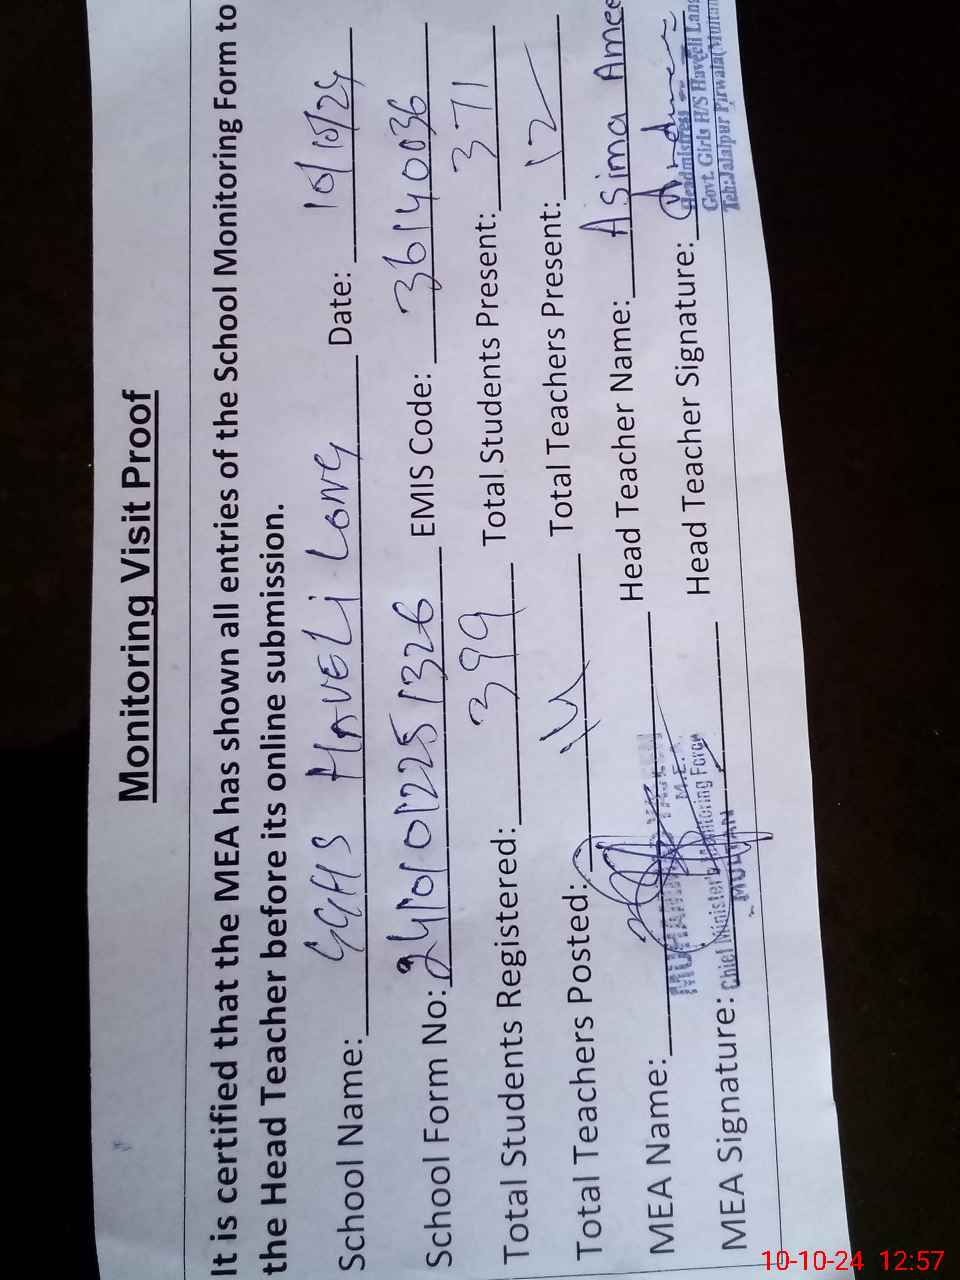 Monitoring Visit Proof
It is certified that the MEA has shown all entries of the School Monitoring Form to
the Head Teacher before its online submission.
School Name: GGHS HAVELI LONG Date: 10/10/24
School Form No: 24101012251326 EMIS Code: 36140036
Total Students Registered: 399 Total Students Present: 371
Total Teachers Posted: 14 Total Teachers Present: 12
MEA Name: MUHAMMAD YASEEN M.E.A Head Teacher Name: Asima Amee
MEA Signature: Chief Minister's Monitoring Force MULTAN Head Teacher Signature:
Headmistress
Govt. Girls H/S Haveeli Lang
Teh:Jalalpur Pirwala(Multan
10-10-24 12:57